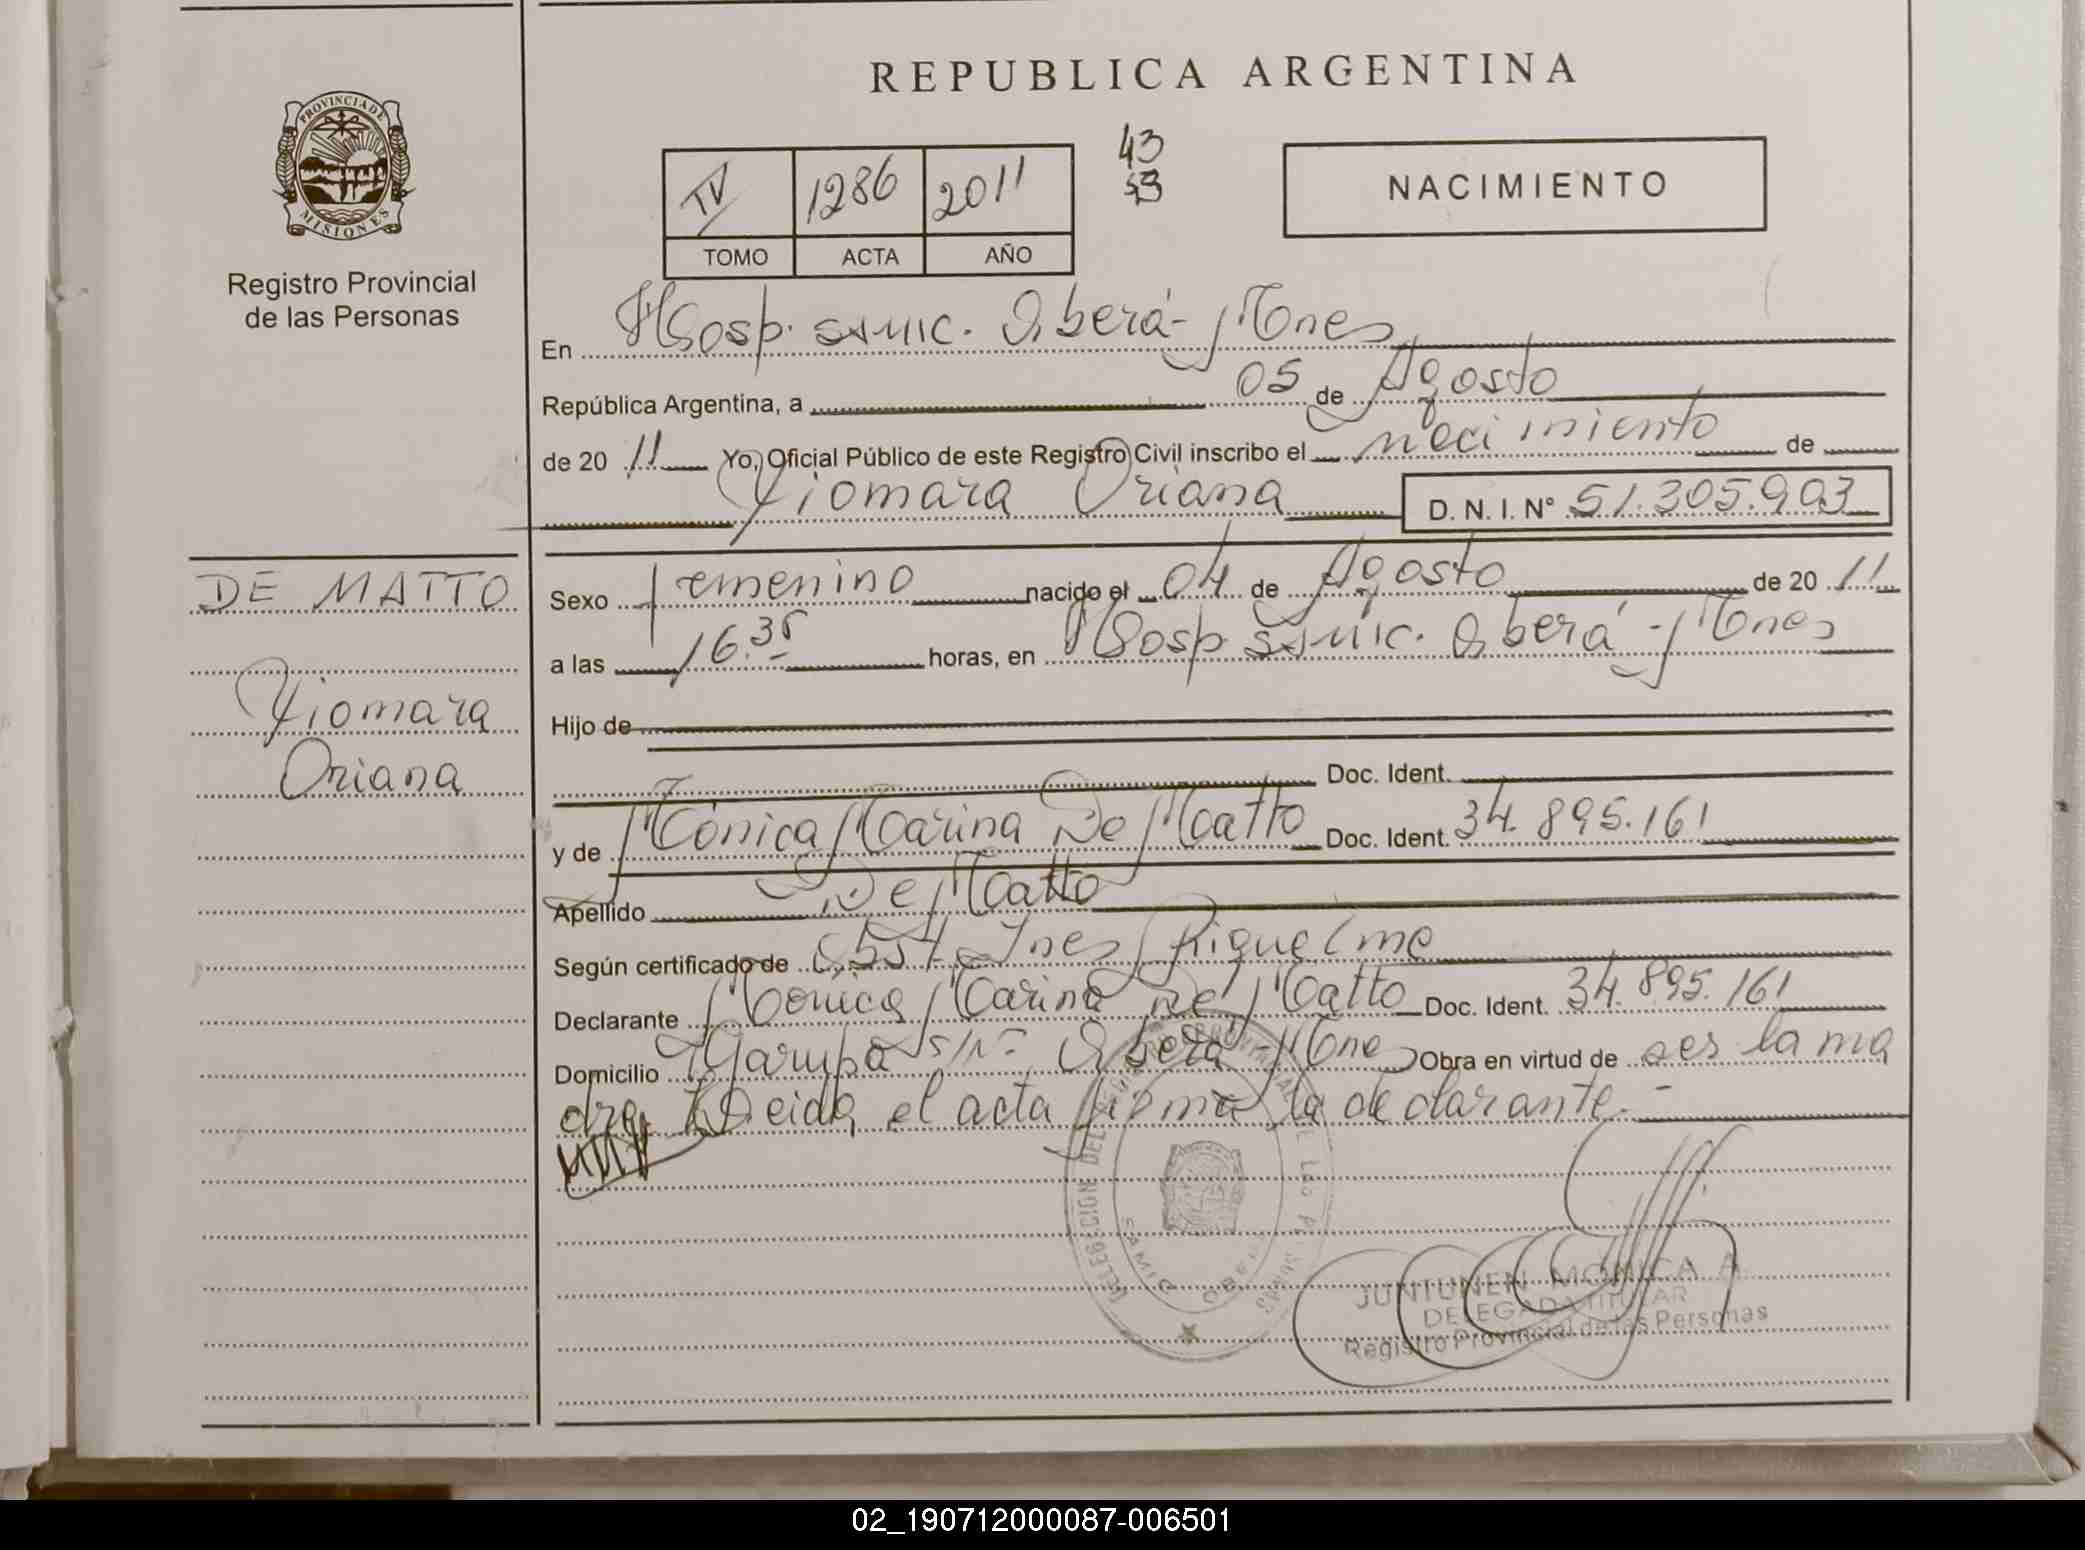 REPUBLICA ARGENTINA
PROVINCIA DE MISIONES
Registro Provincial
de las Personas
IV 1286 2011
TOMO ACTA AÑO
43
43
NACIMIENTO
En Hosp. SAMIC. Oberá - Mnes
República Argentina, a 05 de Agosto
de 20 11 Yo, Oficial Público de este Registro Civil inscribo el nacimiento de
Xiomara Oriana D. N. I. Nº 51.305.903
DE MATTO
Xiomara
Oriana
Sexo femenino nacido el 04 de Agosto de 20 11
a las 16.35 horas, en Hosp. SAMIC. Oberá - Mnes
Hijo de
Doc. Ident.
y de Mónica Marina De Matto Doc. Ident. 34.895.161
Apellido De Matto
Según certificado de Obst. Ines Riquelme
Declarante Monica Marina De Matto Doc. Ident. 34.895.161
Domicilio Garupa s/nº Oberá - Mnes Obra en virtud de ser la ma
dre. Leida el acta firma la declarante.-
DELEGACION DEL REGISTRO PROVINCIAL DE LAS PERSONAS
SAMIC OBERA
JUNTUNEN MONICA A
DELEGADA TITULAR
Registro Provincial de las Personas
02_190712000087-006501